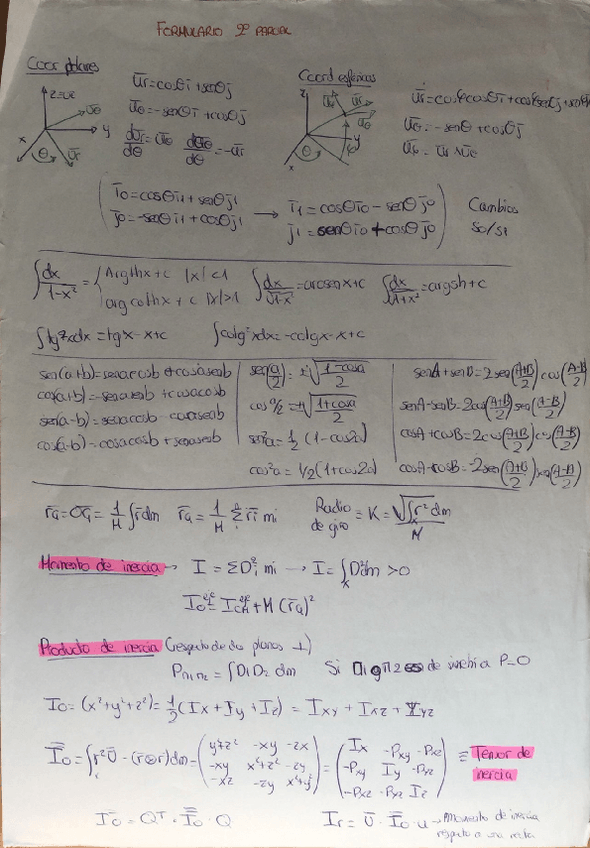 FORMULARIO 2º PARCIAL
Coor polares
z=uz
ūθ
y
x
θ
ūr
ūr=cosθī+senθj̄
ūθ=-senθī+cosθj̄
dūr/dθ=ūθ dūθ/dθ=-ūr
Coord esféricas
z
y
x
ūr
ūθ
ūθ=-senθ+cosθj̄
ī0=cosθī1+senθj̄1
j̄0=-senθī1+cosθj̄1
→ ī1=cosθī0-senθj̄0
j̄1=senθī0+cosθj̄0
Cambios
S0/S1
∫dx/(1-x²)= { Argthx+c |x|<1
argcothx+c |x|>1
∫dx/√(1-x²)=arcsenx+c ∫dx/√(1+x²)=argsh+c
∫tg²xdx=tgx-x+c ∫cotg²xdx=-cotgx-x+c
sen(a+b)=senacosb+cosasenb
cos(a+b)=-senasenb+cosacosb
sen(a-b)=senacosb-cosasenb
cos(a-b)=cosacosb+senasenb
sen(a/2)=±√((1-cosa)/2)
cos a/2=±√((1+cosa)/2)
sen²a=1/2(1-cos2a)
cos²a=1/2(1+cos2a)
senA+senB=2sen((A+B)/2)cos((A-B)/2)
senA-senB=2cos((A+B)/2)sen((A-B)/2)
cosA+cosB=2cos((A+B)/2)cos((A-B)/2)
cosA-cosB=-2sen((A+B)/2)sen((A-B)/2)
r̄G=O̅G̅=1/M∫r̄dm r̄G=1/M Σr̄i mi Radio de giro = K=√(∫r²dm/M)
Momento de inercia → I=ΣD²i mi → I=∫D²dm>0
M(r̄G)²
Producto de inercia (respecto de dos planos ⊥)
Pπ1π2=∫D1D2 dm Si π1 o π2 es de simetría P=0
I0=(x²+y²+z²)=1/2(Ix+Iy+Iz)=Ixy+Ixz+Iyz
I̿0=∫(r²U̿-(r̄⊗r̄))dm=(y²+z² -xy -zx
-xy x²+z² -zy
-xz -zy x²+y²)
=(Ix -Pxy -Pxz
-Pxy Iy -Pyz
-Pxz -Pyz Iz)
≡ Tensor de
inercia
I̿0=Qᵀ·I̿0·Q
Ir=ū·I̿0·u → Momento de inercia
respecto a una recta